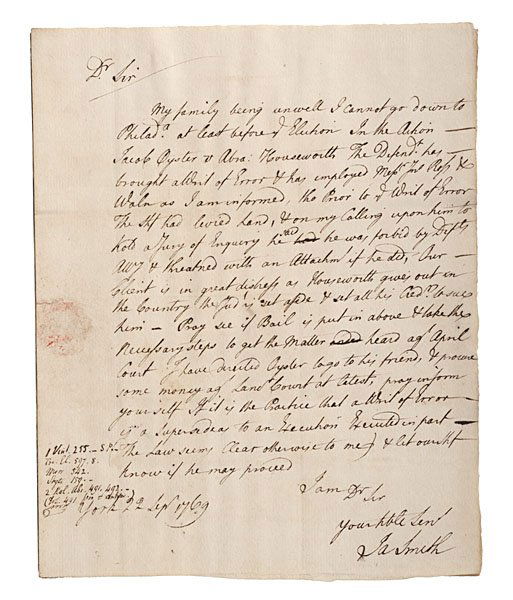 Dr Sir
My family being unwell I cannot go down to
Philada. at least before ye Election In the Action
Jacob Oyster v Abra: Houseworth The Defendt. has
brought a Writ of Error & has employed Messrs. Ross &
Waln as I am informed, tho Prior to ye Writ of Error
The Shf had levied hand, & on my Calling upon him to
hold a Jury of Enquiry he sd he was forbid by Defts
Atty & threatned with an Attachmt if he did, Our
Client is in great distress as Houseworth gives out in
the Country the Judt is set aside & set all his Credrs to sue
him — Pray see if Bail is put in above & take the
necessary steps to get the Matter heard agt April
Court I have directed Oyster to go to his friend, & procure
some money agt Lancr Court at latest, pray inform
yourself If it is the Practice that a Writ of Error
is a Supersedeas to an Execution Executed in part
The Law seems Clear otherwise to me & let Ourkt
know if he may proceed
I am Dr Sir
Your Hble Servt
Ja Smith
York 22 Sept 1769
1 Vent. 255.
Cro. El. 597. 8.
2 Rol. Abr. 491. 492.